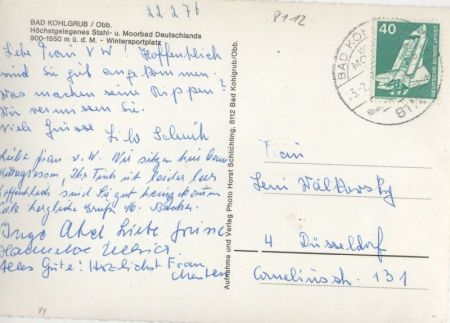 22 2 76
8112
BAD KOHLGRUB / Obb.
Höchstgelegenes Stahl- u. Moorbad Deutschlands
900-1550 m ü. d. M. - Wintersportplatz
Liebe Frau v W! Hoffentlich
sind Sie gut angekommen!
Was machen seine Rippen?
Wir vermissen Sie.
Viele Grüsse
Liebe Frau v. W. Wir sitzen hier beim
Ihr Tisch ist leider leer
Hoffentlich sind Sie gut heimgekommen
viele herzliche Grüße
Inge Abel Liebe Grüsse
Hannelore
Alles Gute! Herzlichst Frau
Aufnahme und Verlag Photo Horst Schlichting, 8112 Bad Kohlgrub/Obb.
BAD KOHL
811
40
DEUTSCHE BUNDESPOST
Frau
Leni
4 Düsseldorf
Corneliusstr. 131